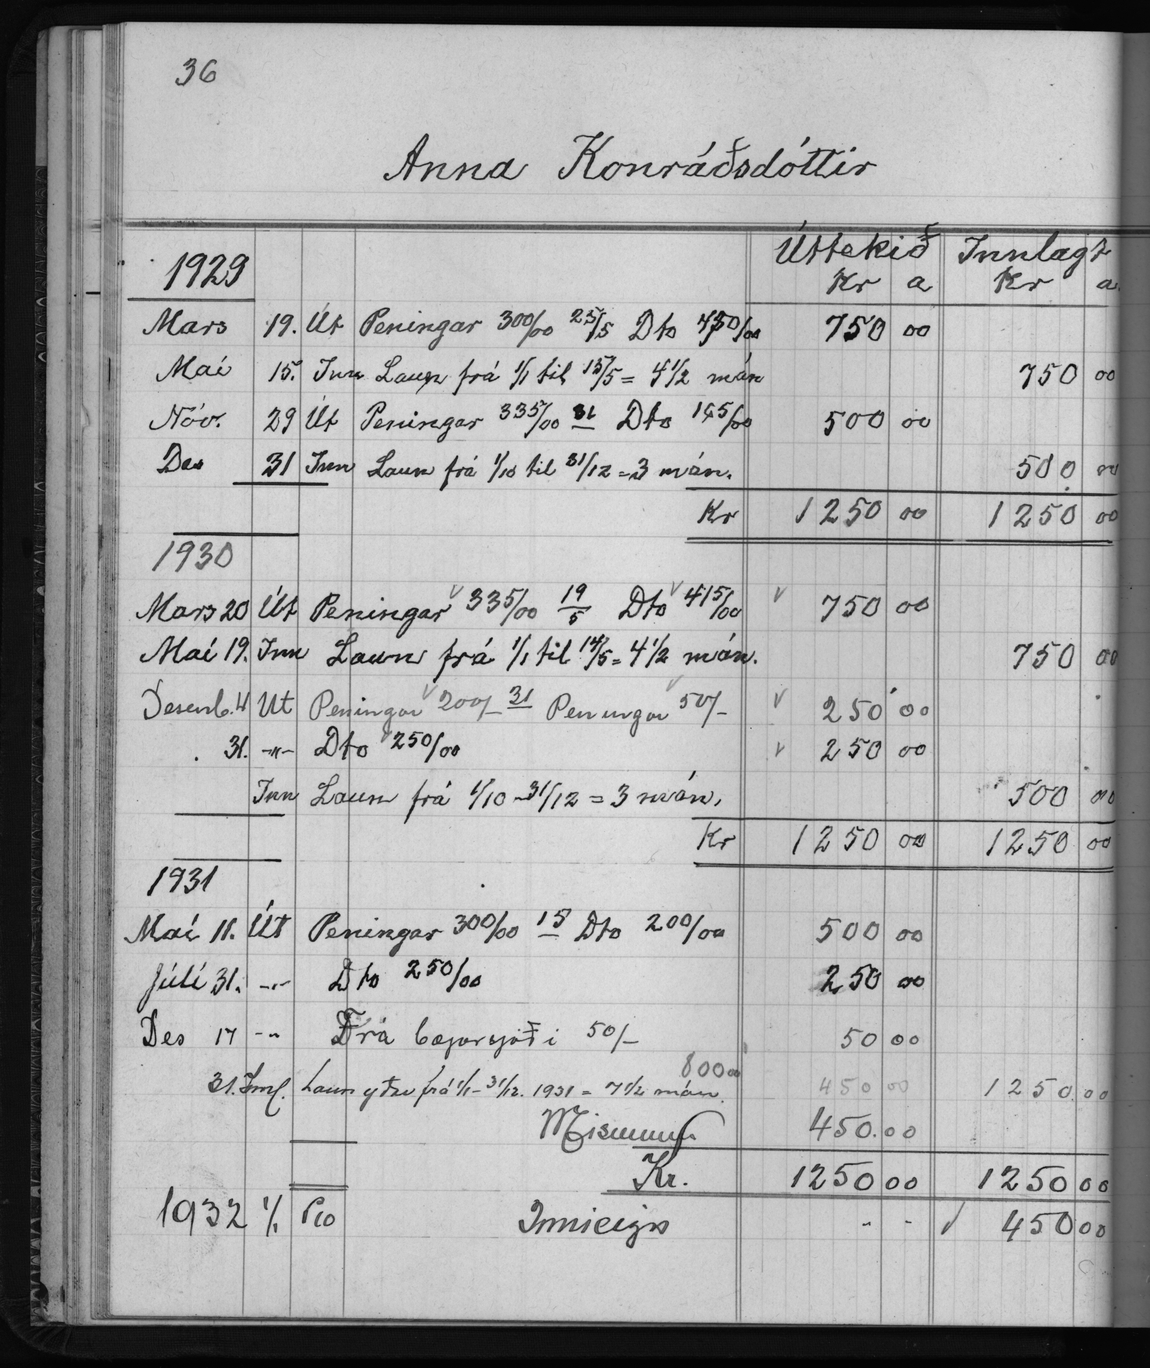 36
Anna Konráðsdóttir
Úttekið Innlagt
1929 Kr a Kr a
Mars 19. Út Peningar 300/00 25/5 Dto 450/00 750 00
Maí 15. Inn Laun frá 1/1 til 15/5 = 4 1/2 mán 750 00
Nóv. 29 Út Peningar 335/00 31 Dto 165/00 500 00
Des 31 Inn Laun frá 1/10 til 31/12 = 3 mán. 500 00
Kr 1250 00 1250 00
1930
Mars 20 Út Peningar 335/00 19/5 Dto 415/00 750 00
Maí 19. Inn Laun frá 1/1 til 14/5 = 4 1/2 mán. 750 00
Desemb. 4 Út Peningar 200/- 31 Peningar 50/- 250 00
31. -"- Dto 250/00 250 00
Inn Laun frá 1/10 - 31/12 = 3 mán. 500 00
Kr 1250 00 1250 00
1931
Maí 11. Út Peningar 300/00 15 Dto 200/00 500 00
Júlí 31. -"- Dto 250/00 250 00
Des 17 -"- Frá bæjarsjóði 50/- 50 00
800 00
31. Innl. Laun yðar frá 1/1 - 31/12. 1931 = 7 1/2 mán. 450 00 1250.00
Mismunur 450.00
Kr. 1250 00 1250 00
1932 1/1 Pro Inneign - - 450 00